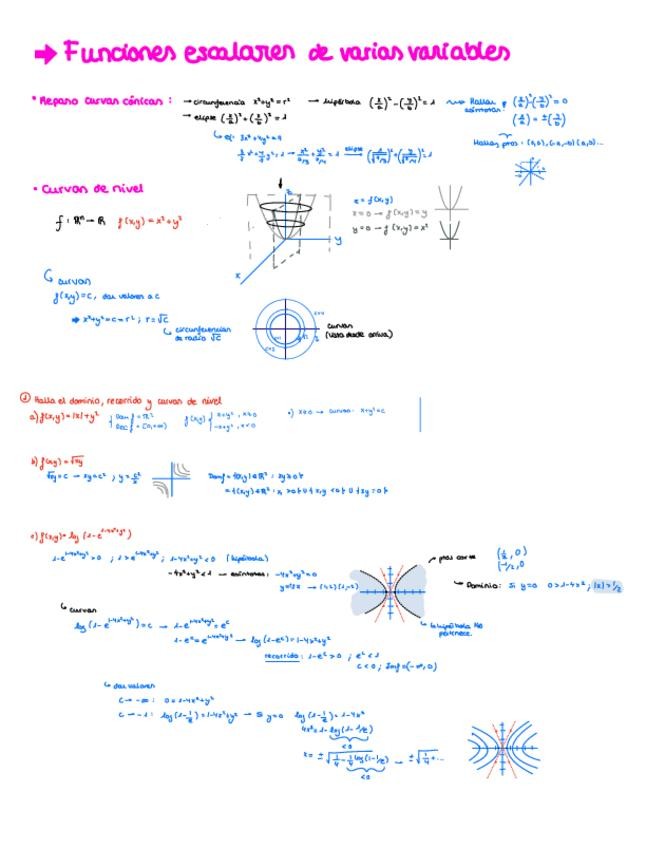 ➡ Funciones escalares de varias variables
• Repaso curvas cónicas : → circunferencia x²+y²=r² → hipérbola (x/a)²-(y/b)²=1 ⇝ Hallar asíntotas: (x/a)²-(y/b)²=0
→ elipse (x/a)²+(y/b)²=1
(x/a)=±(y/b)
• Curvas de nivel
f: ℝⁿ→ℝ f(x,y)=x²+y²
z
y
x
z=f(x,y)
x=0 → f(x,y)=y
y=0 → f(x,y)=x²
curvas
f(x,y)=c, dar valores a c
➡ x²+y²=c=r²; r=√c
circunferencias de radio √c
curvas
(vista desde arriba)
① Halla el dominio, recorrido y curvas de nivel
a) f(x,y)=|x|+y² { Dom f=ℝ² f(x,y) { x+y², x≥0
Rec f=[0,+∞) -x+y², x<0
•) x≥0 → curvas: x+y²=c
b) f(x,y)=√xy
√xy=c → xy=c²; y=c²/x Dom f={(x,y)∈ℝ²: xy≥0}
c) f(x,y)=log(1-e^(1-4x²+y²))
1-e^(1-4x²+y²)>0; 1>e^(1-4x²+y²); 1-4x²+y²<0 (hipérbola)
asíntotas: -4x²+y²=0
ptos corte (1/2,0)
(-1/2,0)
Dominio: Si y=0 0>1-4x²; |x|>1/2
la hipérbola NO pertenece.
curvas
log(1-e^(1-4x²+y²))=c → 1-e^(1-4x²+y²)=e^c
1-e^c=e^(1-4x²+y²) → log(1-e^c)=1-4x²+y²
recorrido: 1-e^c>0; e^c<1
c<0; Im f=(-∞,0)
dar valores
c→-∞: 0=1-4x²+y²
c=-1: log(1-1/e)=1-4x²+y² → Si y=0 log(1-1/e)=1-4x²
4x²=1-log(1-1/e)
<0
x=±√(1/4-1/4 log(1-1/e)) → ±√(1/4+...
<0